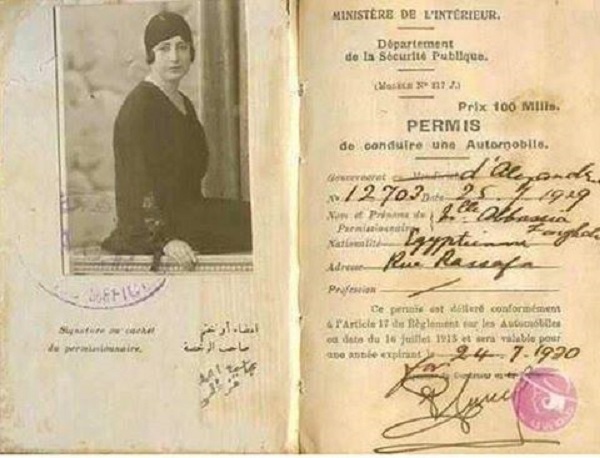 Signature ou cachet
du permissionnaire.
امضاء أو ختم
صاحب الرخصة
MINISTÈRE DE L'INTÉRIEUR.
Département
de la Sécurité Publique.
(MODÈLE N° 217 J.)
Prix 100 Mills.
PERMIS
de conduire une Automobile.
Gouvernorat ou d'Alexandrie
N° 12703 Date 25 7 1929
Nom et Prénoms du Mlle Abbassia
Permissionnaire
Nationalité Egyptienne
Adresse Rue Rassafa
Profession
Ce permis est délivré conformément
à l'Article 17 du Règlement sur les Automobiles
en date du 16 juillet 1913 et sera valable pour
une année expirant le 24-7-1930